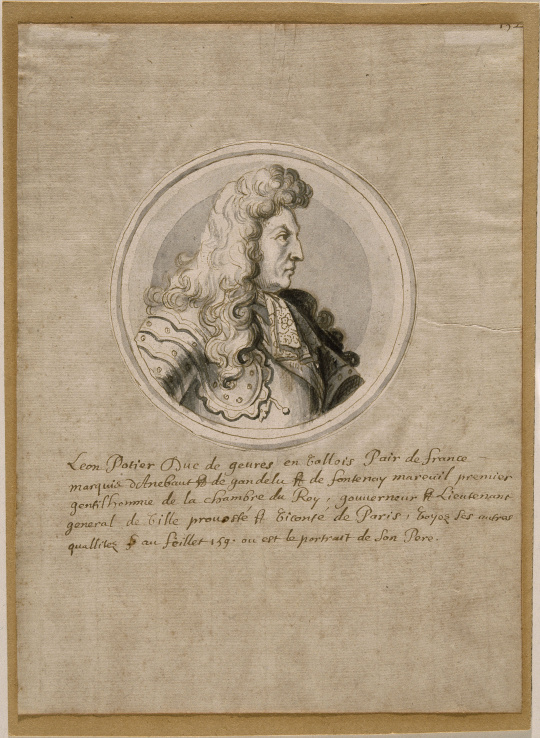 Leon Potier Duc de gevres en Vallois Pair de france
marquis d'Anebaut & de gandelu & de fontenay mareuil premier
gentilhomme de la chambre du Roy, gouverneur & Lieutenant
general de Ville provosté & Viconté de Paris, Voyez ses autres
quallitez au feillet 159. ou est le portrait de son Pere.